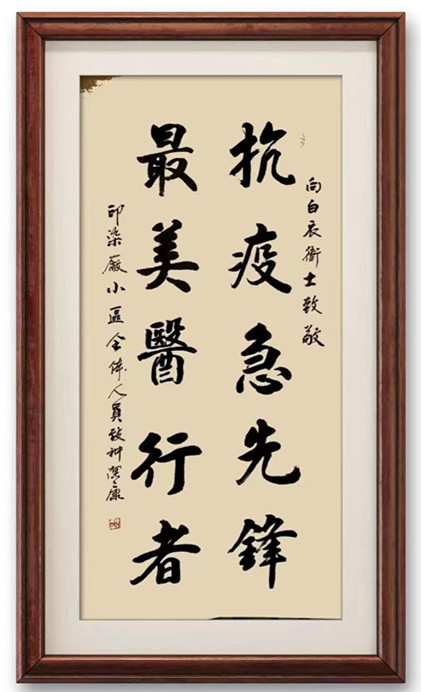 向白衣衛士致敬
抗疫急先鋒
最美醫行者
印染厰小區全体人員致